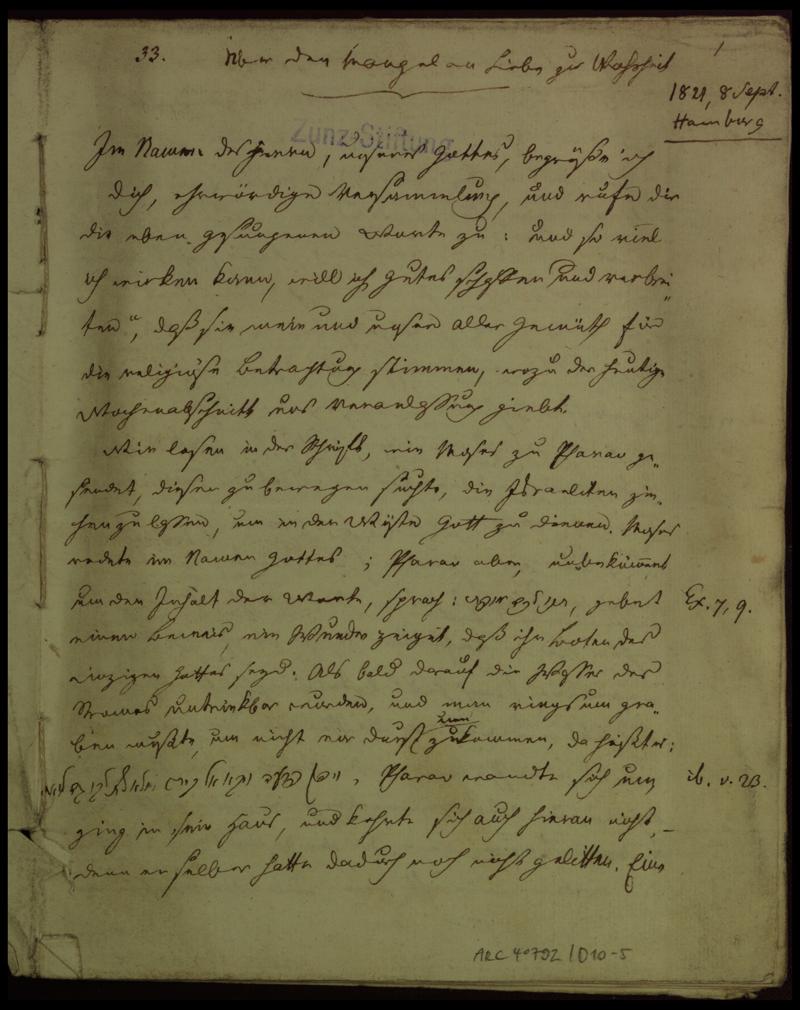 33. Über den Mangel an Liebe zur Wahrheit
1
1821, 8 Sept.
Hamburg
Zunz-Stiftung
Im Namen des Herrn, unseres Gottes, begrüße ich
dich, ehrwürdige Versammlung, und rufe dir
die eben gesungenen Worte zu: und so viel
ich wirken kann, will ich Gutes schaffen und verbrei-
ten", daß sie mein und unser aller Gemüth für
die religiöse Betrachtung stimmen, wozu der heutige
Wochenabschnitt uns Veranlassung giebt.
Wir lasen in der Schrift, wie Moses zu Pharao ge-
sendet, diesen zu bewegen suchte, die Israeliten zie-
hen zu lassen, um in der Wüste Gott zu dienen. Moses
redete im Namen Gottes; Pharao aber, unbekümmert
um den Inhalt der Worte, sprach: תנו לכם מופת, gebet
Ex. 7, 9.
einen Beweis, ein Wunder zeiget, daß ihr Boten des
einzigen Gottes seyd. Als bald darauf die Wasser des
Stromes untrinkbar wurden, und man ringsum gra-
ben mußte, um nicht vor Durst umzukommen, da heißt es:
ויפן פרעה ויבא אל ביתו ולא שת לבו גם לזאת, Pharao wandte sich um
ib. v. 23.
ging in sein Haus, und kehrte sich auch hieran nicht, –
denn er selber hatte dadurch noch nicht gelitten. Eine
ARC 4°792/D10-5